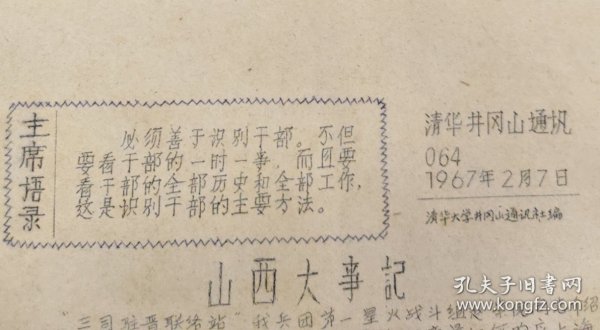 主席语录
必须善于识别干部。不但
要看干部的一时一事，而且要
看干部的全部历史和全部工作，
这是识别干部的主要方法。
清华井冈山通讯
064
1967年2月7日
清华大学井冈山通讯社编
山西大事記
"三司驻晋联络站"我兵团第一星火战斗组
孔夫子旧书网
book.kongfz.com